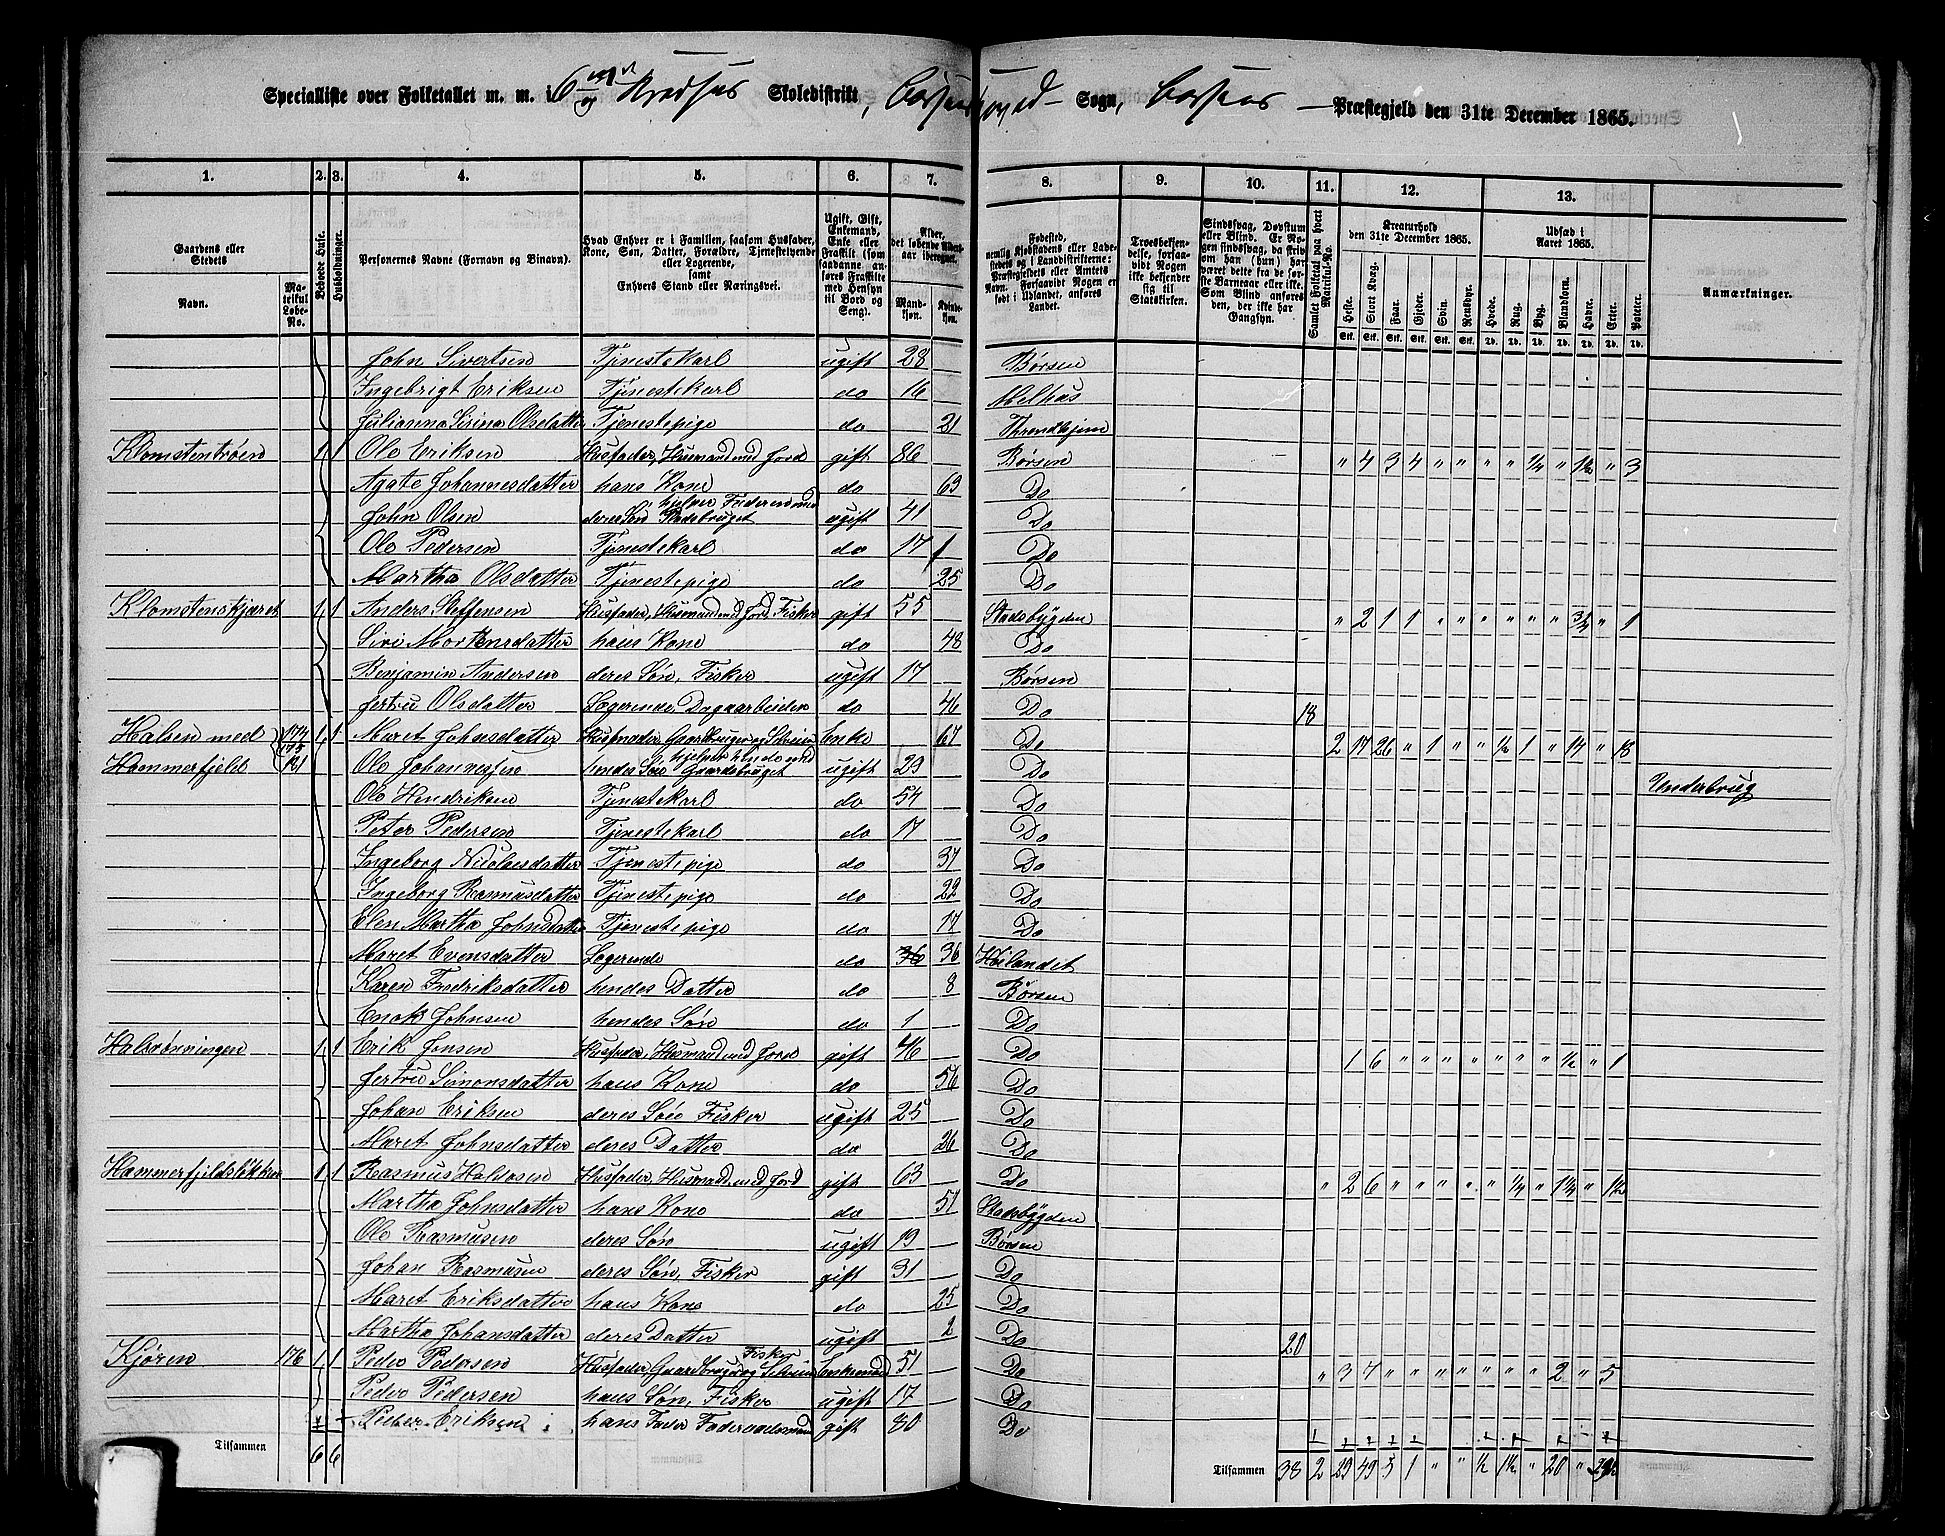 Specialliste over Folketallet m. m. i 6 Kredses Skoledistrikt, Børsen Sogn, Børsens Præstegjeld den 31te December 1865.
1. 2. 3. 4. 5. 6. 7. 8. 9. 10. 11. 12. 13.
Gaardens eller Stedets
Navn.
Matrikul Løbe-No.
Beboede Huse.
Husholdninger.
Personernes Navne (Fornavn og Binavn).
Hvad Enhver er i Familien, saasom Husfader, Kone, Søn, Datter, Forældre, Tjenestetydende eller Logerende, samt Enhvers Stand eller Næringsvei.
Ugift, Gift, Enkemand, Enke eller Fraskilt (som saadanne anføres Fraskilte med Hensyn til Bord og Seng).
Alder, det løbende Alders-aar iberegnet.
Mandkjøn. Kvindekjøn.
Fødested, nemlig Kjøbstadens eller Ladestedets eller i Landdistrikterne: Præstegjeldets eller Amtets Navn. Forsaavidt Nogen er født i Udlandet, anføres Landet.
Troesbekjendelse, forsaavidt Nogen ikke bekjender sig til Statskirken.
Sindssvag, Døvstum eller Blind. Er Nogen sindssvag, da skrives om han (hun) har været dette fra de første Barneaar eller ikke. Som Blind anføres den, der ikke har Gangsyn.
Samlet Folketal paa hvert Matrikul-No.
Kreaturhold den 31te December 1865.
Heste. Stort Kvæg. Faar. Gjeder. Svin. Rensdyr.
Udsæd i Aaret 1865.
Hvede. Rug. Byg. Blandkorn. Havre. Erter. Poteter.
Anmærkninger.
John Sivertsen Tjenestekarl ugift 28 Børsen
Ingebrigt Eriksen Tjenestekarl do 16 Melhus
Julianna Sirina Olsdatter Tjenestepige do 21 Throndhjem
Klomstentrøen 1 1 Ole Eriksen Husfader, Husmand med Jord gift 86 Børsen " 4 3 4 " " " " 1/4 " 1 1/2 " 3
Agate Johannesdatter hans Kone do 63 Do
John Olsen deres Søn hjelper Faderen med Pladsbruget ugift 41 Do
Ole Pedersen Tjenestekarl do 17 Do
Martha Olsdatter Tjenestepige do 25 Do
Klomstenskjæret 1 1 Anders Steffensen Husfader, Husmand med Jord, Fisker gift 55 Stadsbygden " 2 1 1 " " " " " " 3/4 " 1
Siri Mortensdatter hans Kone do 48 Do
Benjamin Andersen deres Søn, Fisker ugift 17 Børsen
Jertru Olsdatter Logerende, Dagarbeider do 46 Do 18
Halsen med 174 175 1 1 Maret Johnsdatter Husmoder, Gaardbruger og Selveier Enke 67 Do 2 17 26 " 1 " " 1/2 1 " 14 " 18
Hammerfjeld 121 Ole Johannessen hendes Søn hjelper hende med Gaardsbruget ugift 29 Do
Ole Hendriksen Tjenestekarl do 54 Do Underbrug
Peter Pedersen Tjenestekarl do 17 Do
Ingeborg Nicolaesdatter Tjenestepige do 37 Do
Ingeborg Rasmusdatter Tjenestepige do 22 Do
Elen Martha Johnsdatter Tjenestepige do 17 Do
Maret Evensdatter Logerende do 36 36 Høilandet
Karen Fredriksdatter hendes Datter do 8 Børsen
Enok Johnsen hendes Søn do 1 Do
Halsrønningen 1 1 Erik Jonsen Husfader, Husmand med Jord gift 46 Do 1 6 " " " " " " " " 1/2 " 1
Jertru Simonsdatter hans Kone do 56 Do
Johan Eriksen deres Søn Fisker ugift 25 Do
Maret Johnsdatter deres Datter do 26 Do
Hammerfjeldsløkken 1 1 Rasmus Haldosen Husfader, Husmand med Jord gift 63 Do " 2 6 " " " " " 1/4 " 1 1/4 " 1 1/2
Martha Johnsdatter hans Kone do 57 Stadsbygden
Ole Rasmusen deres Søn ugift 19 Børsen
Johan Rasmusen deres Søn, Fisker gift 31 Do
Maret Eriksdatter hans Kone do 25 Do
Martha Johansdatter deres Datter ugift 2 Do 20
Kjøren 176 1 1 Peder Pedersen Husfader, Gaardbruger og Selveier Fisker Enkemand 51 Do " 3 7 " " " " " " " 2 " 5
Peder Pedersen hans Søn, Fisker ugift 17 Do
Peder Eriksen hans Fader Føderaadsmand gift 80 Do
Tilsammen 6 6
Tilsammen 38 2 29 49 5 1 " " 1/2 1 1/2 " 20 "